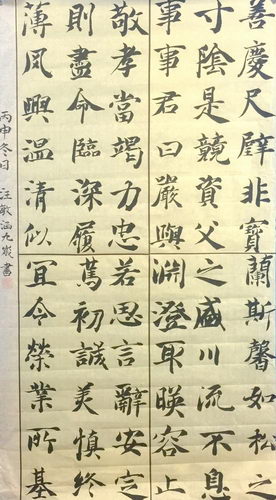 善慶尺璧非寶
寸陰是競資父
事事君曰嚴與
敬孝當竭力忠
則盡命臨深履
薄夙興温清似
蘭斯馨如松之
之盛川流不息
淵澄取暎容止
若思言辭安定
篤初誠美慎終
宜令榮業所基
丙申冬日 汪敏涵九歲書